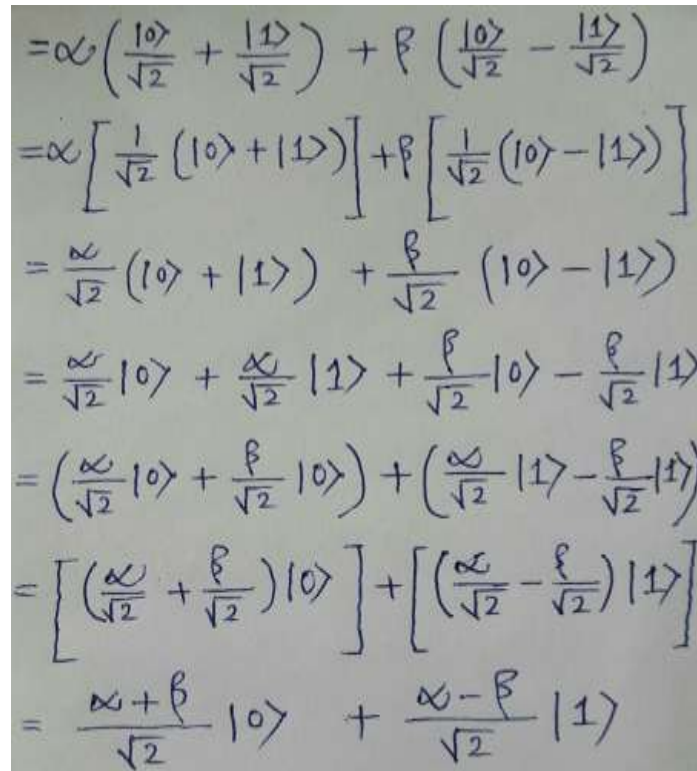 =α(|0⟩/√2 + |1⟩/√2) + β(|0⟩/√2 − |1⟩/√2)
=α[1/√2 (|0⟩+|1⟩)]+β[1/√2 (|0⟩−|1⟩)]
= α/√2 (|0⟩ + |1⟩) + β/√2 (|0⟩ − |1⟩)
= α/√2 |0⟩ + α/√2 |1⟩ + β/√2 |0⟩ − β/√2 |1⟩
= (α/√2 |0⟩ + β/√2 |0⟩) + (α/√2 |1⟩ − β/√2 |1⟩)
= [(α/√2 + β/√2)|0⟩] + [(α/√2 − β/√2)|1⟩]
= (α+β)/√2 |0⟩ + (α−β)/√2 |1⟩